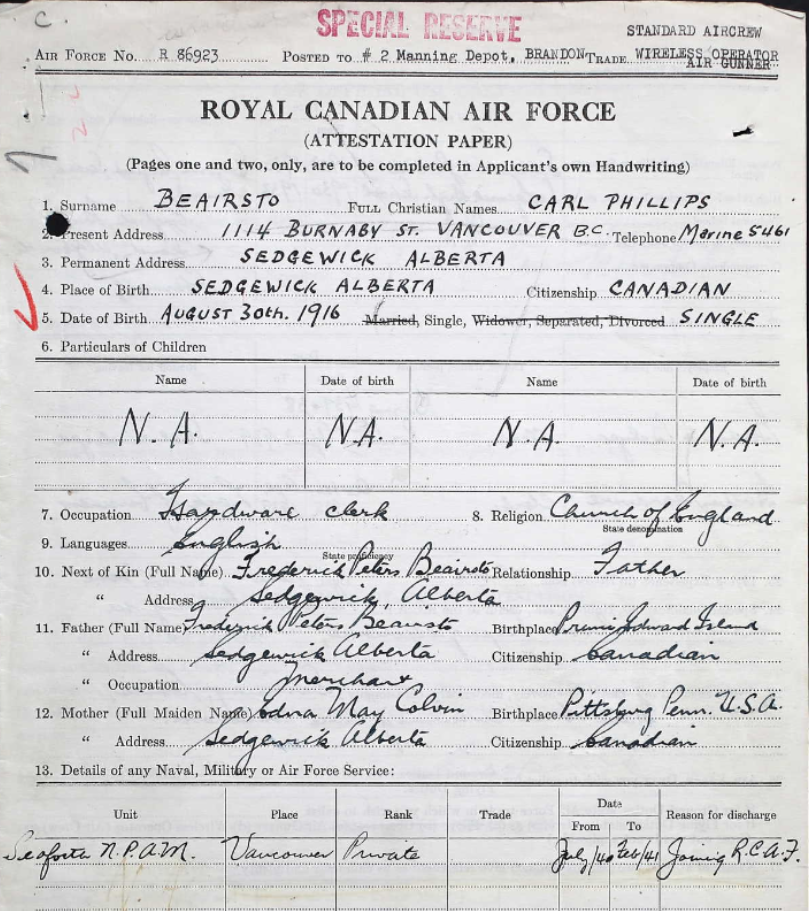 C
SPECIAL RESERVE
STANDARD AIRCREW
AIR FORCE No. R 86923 POSTED TO # 2 Manning Depot, BRANDON TRADE WIRELESS OPERATOR
AIR GUNNER
ROYAL CANADIAN AIR FORCE
(ATTESTATION PAPER)
(Pages one and two, only, are to be completed in Applicant's own Handwriting)
1. Surname BEAIRSTO FULL Christian Names CARL PHILLIPS
2. Present Address 1114 BURNABY ST. VANCOUVER B.C. Telephone Marine 5461
3. Permanent Address SEDGEWICK ALBERTA
4. Place of Birth SEDGEWICK ALBERTA Citizenship CANADIAN
5. Date of Birth AUGUST 30th. 1916 Married, Single, Widower, Separated, Divorced SINGLE
6. Particulars of Children
Name Date of birth Name Date of birth
N.A. N.A. N.A. N.A.
7. Occupation Hardware clerk 8. Religion Church of England
State denomination
9. Languages English
State proficiency
10. Next of Kin (Full Name) Frederick Peters Beairsto Relationship Father
" Address Sedgewick, Alberta
11. Father (Full Name) Frederick Peters Beairsto Birthplace Prince Edward Island
" Address Sedgewick Alberta Citizenship Canadian
" Occupation Merchant
12. Mother (Full Maiden Name) Edna May Colvin Birthplace Pittsburg Penn. U.S.A.
" Address Sedgewick Alberta Citizenship Canadian
13. Details of any Naval, Military or Air Force Service:
Unit Place Rank Trade Date Reason for discharge
From To
Seaforth N.P.A.M. Vancouver Private July/40 Feb/41 Joining R.C.A.F.